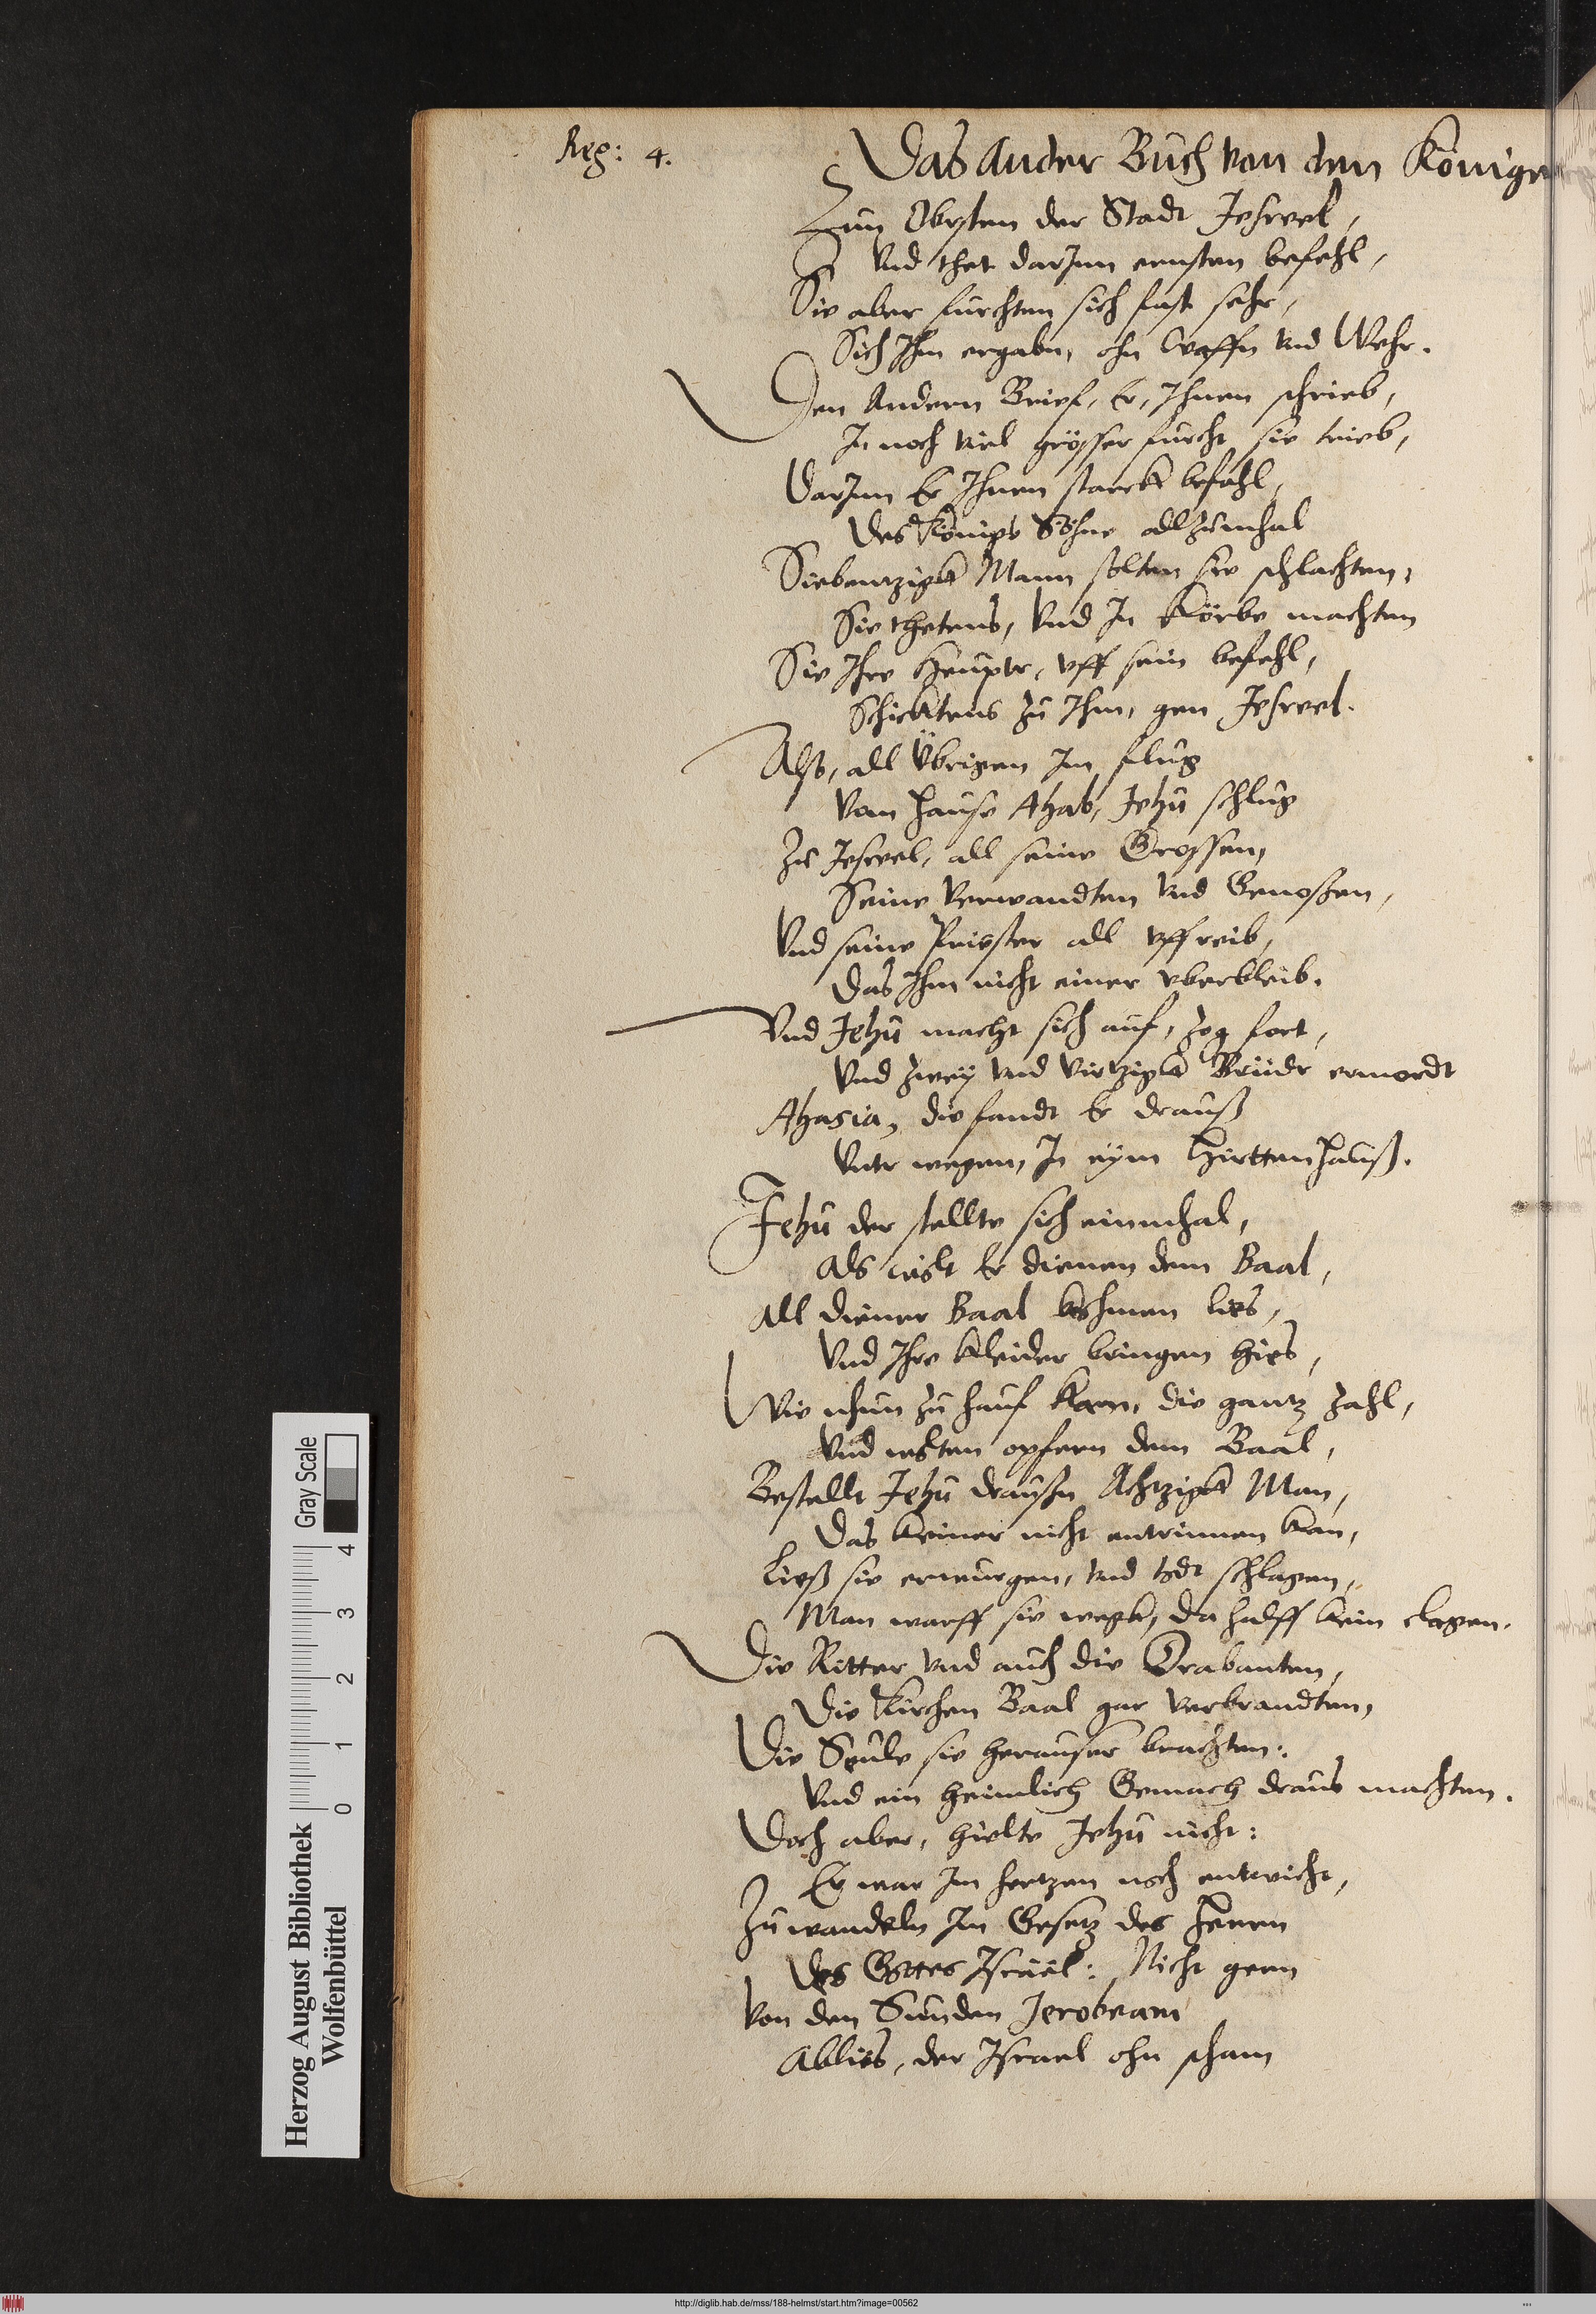 Reg: 4. Das Ander Buch von den Königen
Zun Obrsten der Stadt Jesreel,
Vnd thet darJnn ernsten befehl,
Sie aber furchten sich fast sehr,
Sich Jhm ergabn, ohn Waffn vnd Wehr.
Den Andern Brief, Er, Jhnen schrieb,
Jn noch viel grösser furcht sie trieb,
DarJnn Er Jhnen starck befahl,
Des Königs Söhne allzumhal
Siebentzigk Mann solten sie schlachten,
Sie thetens, Vnd Jn Körbe machten
Sie Jhre Heupte, vff sein befehl,
Schicktens zu Jhm, gen Jesreel.
Also, all Vbrigen Jm flug
Vom Hause Ahab, Jehu schlug
Zu Jesreel, all seine Grossen,
Seine Verwandten vnd Genoßen,
Vnd seine Priester all vffreib,
Das Jhm nicht einer vberbleib.
Vnd Jehu macht sich auf, zog fort,
Vnd zwey vnd viertzigk Brüdr ermordt
Ahasia, die fandt Er drauß
Vntr wegen, Jn eym Hirttenhauß.
Jehu der stellte sich einmhal,
Als wolt Er dienen dem Baal,
All diener Baal kohmen lies,
Vnd Jhre Kleider bringen hies,
Wie nhun zu hauf kam, die gantz zahl,
Vnd wolten opfern dem Baal,
Bestellt Jehu draussn Achtzigk Man,
Das keiner nicht entrinnen kan,
Ließ sie erwurgen, vnd todt schlagen,
Man warff sie wegk, da halff kein clagen.
Die Ritter vnd auch die Drabanten,
Die Kirchen Baal gar verbrandten,
Die Seule sie herausser brachten:
Vnd ein heimlich Gemach draus machten.
Doch aber, hielte Jehu nicht:
Er war Jm hertzen noch entwicht,
Zu wandeln Jm Gesetz des Herrn
Des Gottes Israel: Nicht gern
Von den Sunden Jerobeam
Ablies, der Israel ohn scham
Herzog August Bibliothek
Wolfenbüttel
0 1 2 3 4
Gray Scale
http://diglib.hab.de/mss/188-helmst/start.htm?image=00562